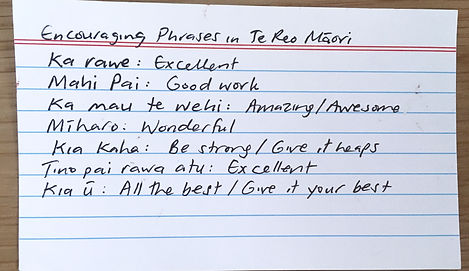 Encouraging Phrases in Te Reo Māori
Ka rawe: Excellent
Mahi Pai: Good work
Ka mau te wehi: Amazing/Awesome
Mīharo: Wonderful
Kia Kaha: Be strong/Give it heaps
Tino pai rawa atu: Excellent
Kia ū: All the best/Give it your best